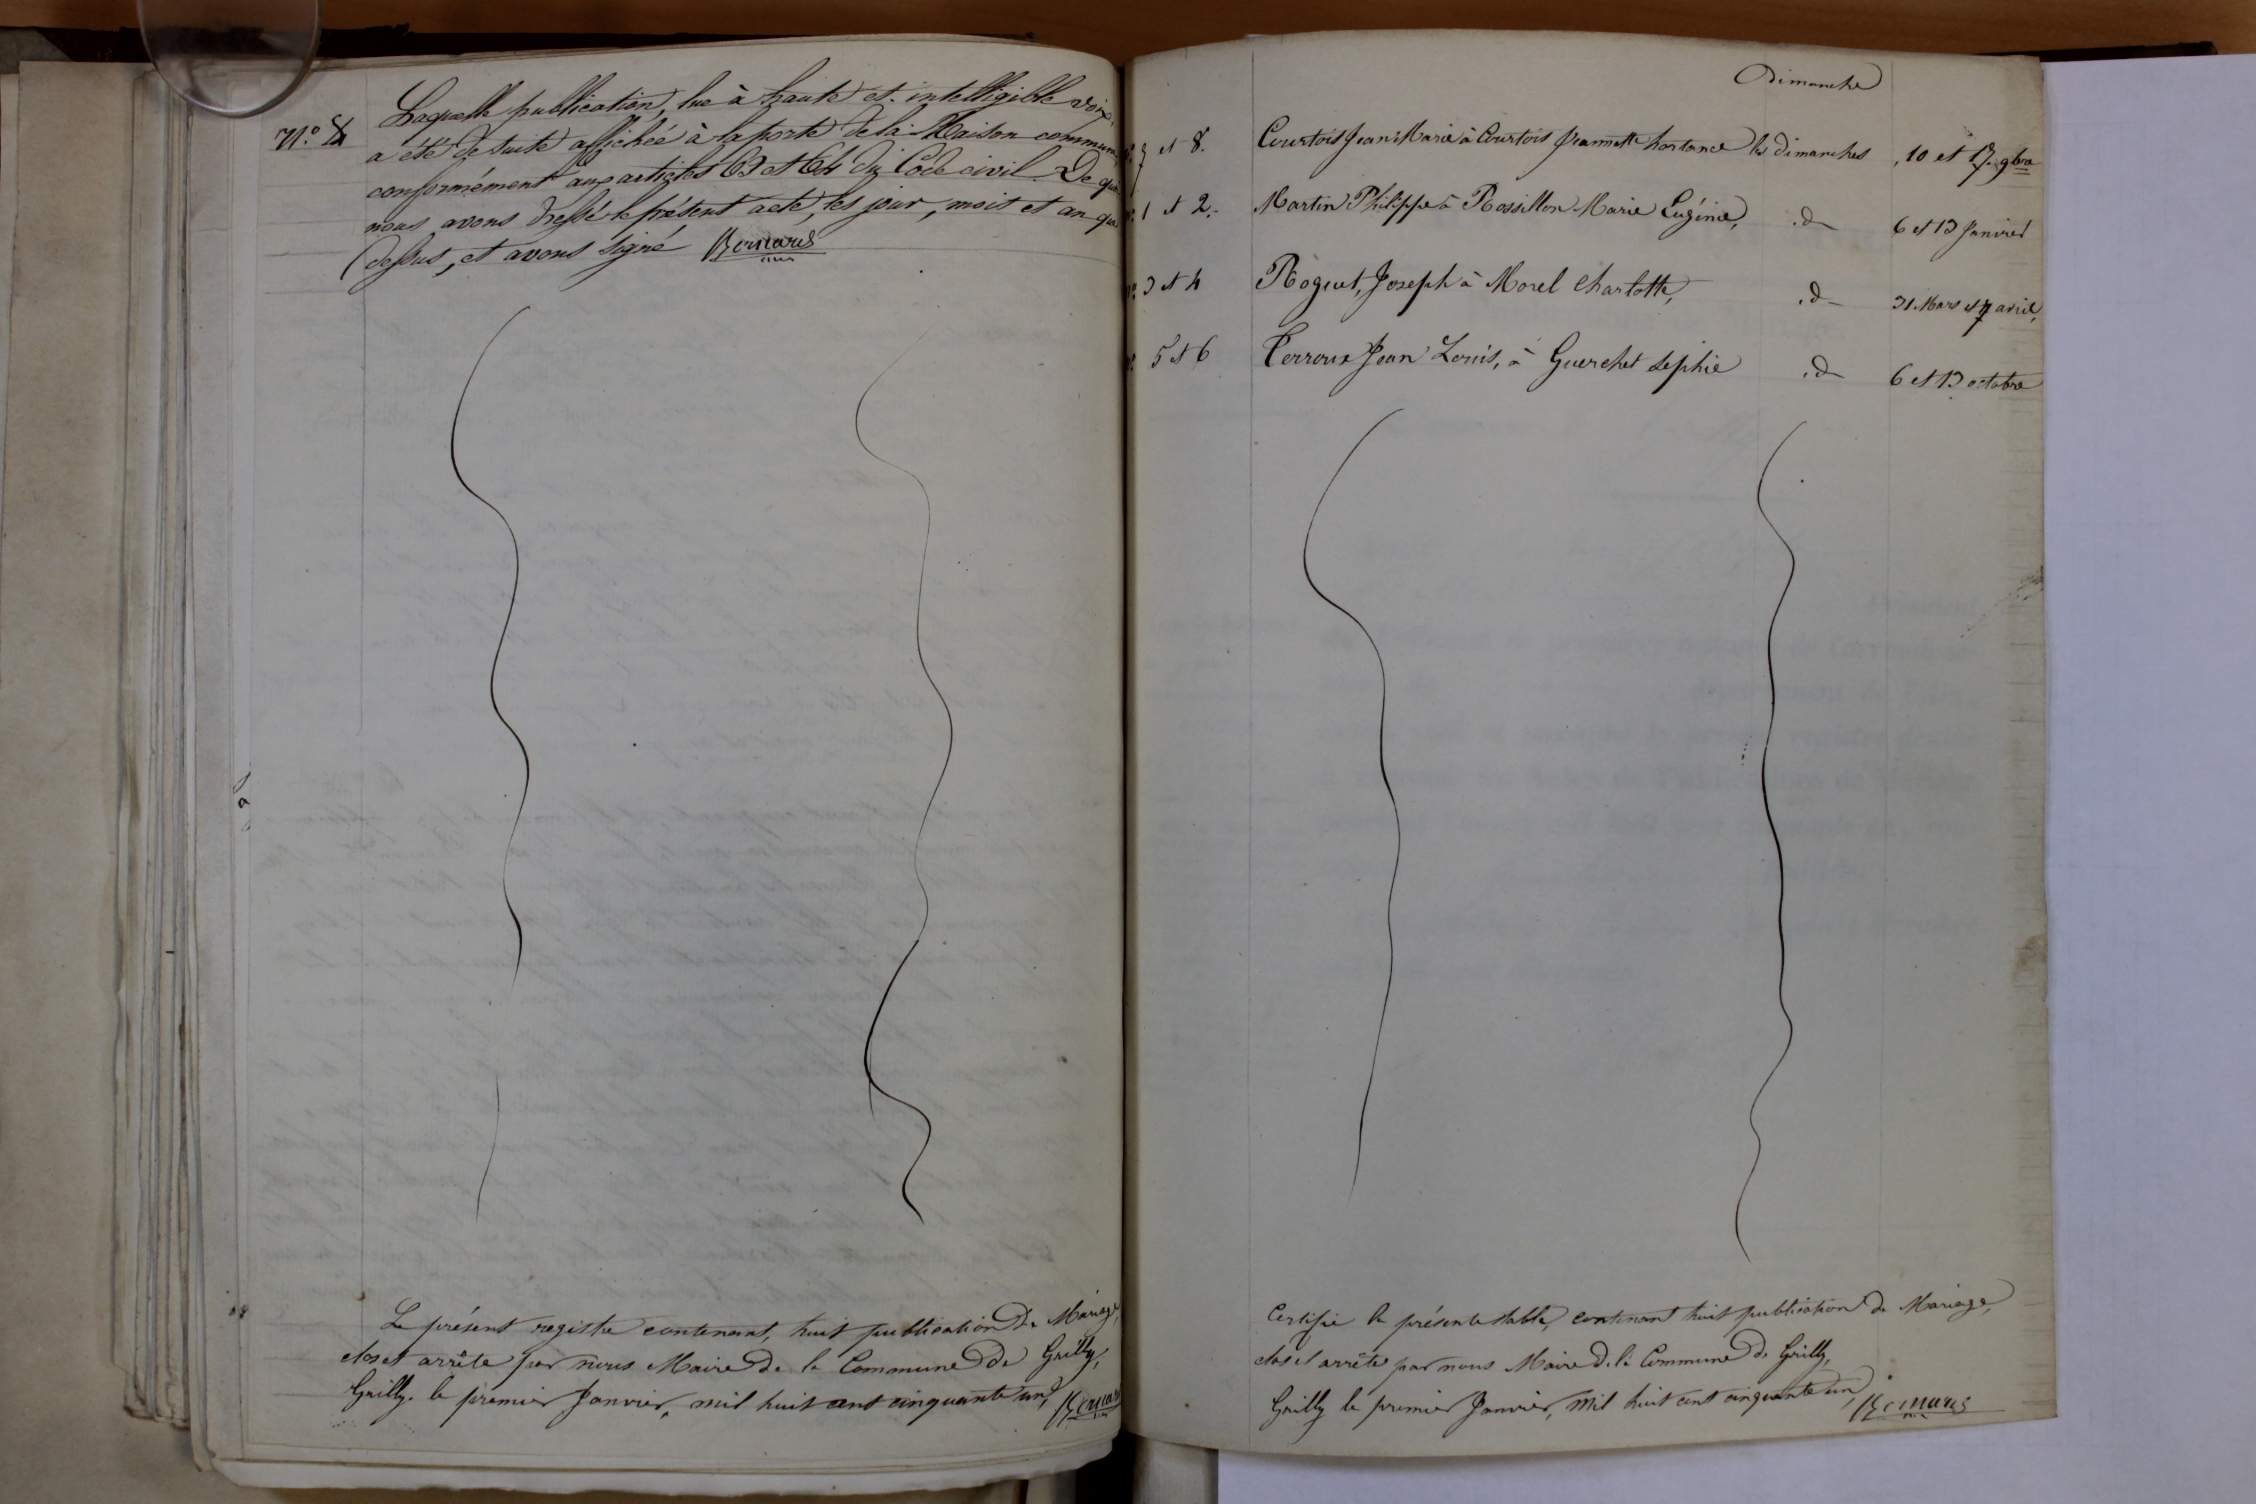 N.º 8
Laquelle publication, lue à haute et intelligible voix,
a été de suite affichée à la porte de la Maison commune
conformément aux articles 63 et 64 du Code civil. De quoi
nous avons dressé le présent acte, les jour, mois et an que
dessus, et avons signé Bernard
Le présent registre contenant, huit publication de Mariage,
clos et arrête par nous Maire de la Commune de Grilly,
Grilly le premier Janvier, mil huit cent cinquante un, Bernard
Dimanche
7 et 8. Courtois Jean Marie à Courtois Jeannette hortance les dimanches, 10 et 17. 9bre
1 et 2. Martin Philippe à Rossillon Marie Eugénie, .d 6 et 13 Janvier
3 et 4 Roguet, Joseph à Morel Charlotte, .d 31 Mars et 7 avril,
5 et 6 Perroux Jean Louis, à Guerchet Sophie .d 6 et 13 octobre
Certifié la présente table, contenant huit publication de Mariage,
clos et arrête par nous Maire de la Commune de Grilly,
Grilly le premier Janvier, mil huit cent cinquante un, Bernard